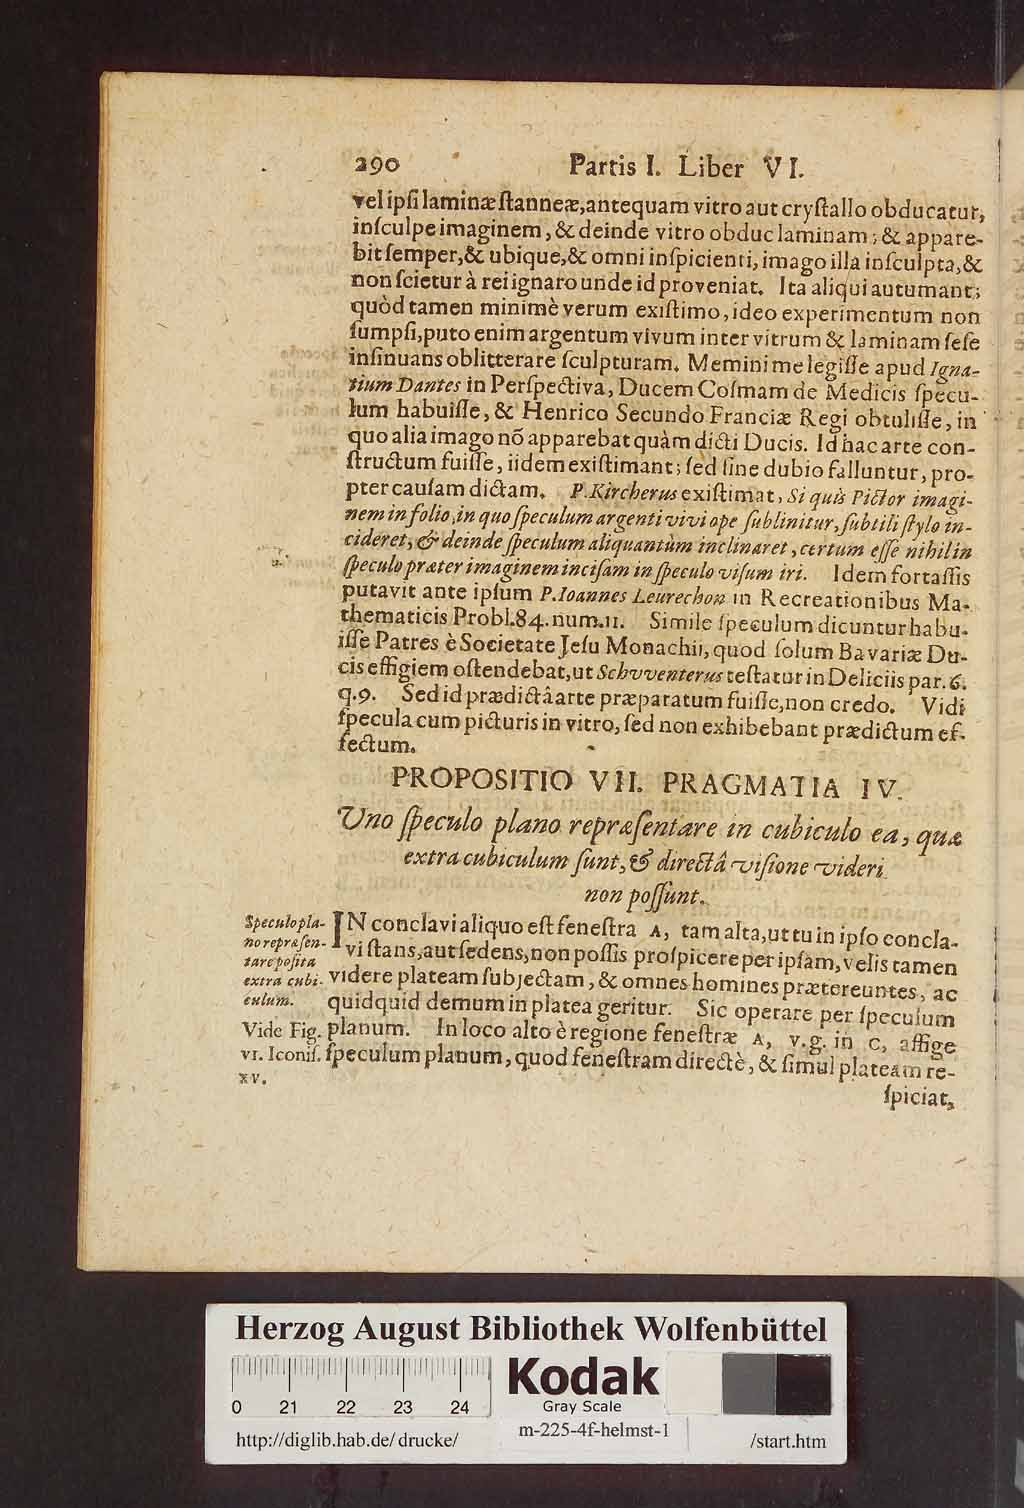 290 Partis I. Liber VI.
vel ipsi laminæ stanneæ, antequam vitro aut crystallo obducatur,
insculpe imaginem, & deinde vitro obduc laminam; & appare-
bit semper, & ubique, & omni inspicienti, imago illa insculpta, &
non scietur à rei ignaro unde id proveniat. Ita aliqui autumant;
quòd tamen minimè verum existimo, ideo experimentum non
sumpsi, puto enim argentum vivum inter vitrum & laminam sese
insinuans oblitterare sculpturam. Memini me legisse apud Igna-
tium Dantes in Perspectiva, Ducem Cosmam de Medicis specu-
lum habuisse, & Henrico Secundo Franciæ Regi obtulisse, in
quo alia imago nõ apparebat quàm dicti Ducis. Id hac arte con-
structum fuisse, iidem existimant; sed sine dubio falluntur, pro-
pter causam dictam. P. Kircherus existimat, Si quis Pictor imagi-
nem in folio, in quo speculum argenti vivi ope sublinitur, subtili stylo in-
cideret, & deinde speculum aliquantùm inclinaret, certum esse nihil in
speculo præter imaginem incisam in speculo visum iri. Idem fortassis
putavit ante ipsum P. Ioannes Leurechon in Recreationibus Ma-
thematicis Probl. 84. num. 11. Simile speculum dicuntur habu-
isse Patres è Societate Jesu Monachii, quod solum Bavariæ Du-
cis effigiem ostendebat, ut Schvventerus testatur in Deliciis par. 6.
q. 9. Sed id prædictâ arte præparatum fuisse, non credo. Vidi
specula cum picturis in vitro, sed non exhibebant prædictum ef-
fectum.
PROPOSITIO VII. PRAGMATIA IV.
Uno speculo plano repræsentare in cubiculo ea, quæ
extra cubiculum sunt, & directâ visione videri
non possunt.
Speculo pla-
no repræsen-
tare posita
extra cubi-
culum.
Vide Fig.
VI. Iconis.
XV.
IN conclavi aliquo est fenestra A, tam alta, ut tu in ipso concla-
vi stans, aut sedens, non possis prospicere per ipsam, velis tamen
videre plateam subjectam, & omnes homines prætereuntes, ac
quidquid demum in platea geritur. Sic operare per speculum
planum. In loco alto è regione fenestræ A, v.g. in C, affige
speculum planum, quod fenestram directè, & simul plateam re-
spiciat,
Herzog August Bibliothek Wolfenbüttel
Kodak
Gray Scale
0 21 22 23 24
http://diglib.hab.de/drucke/ m-225-4f-helmst-1 /start.htm